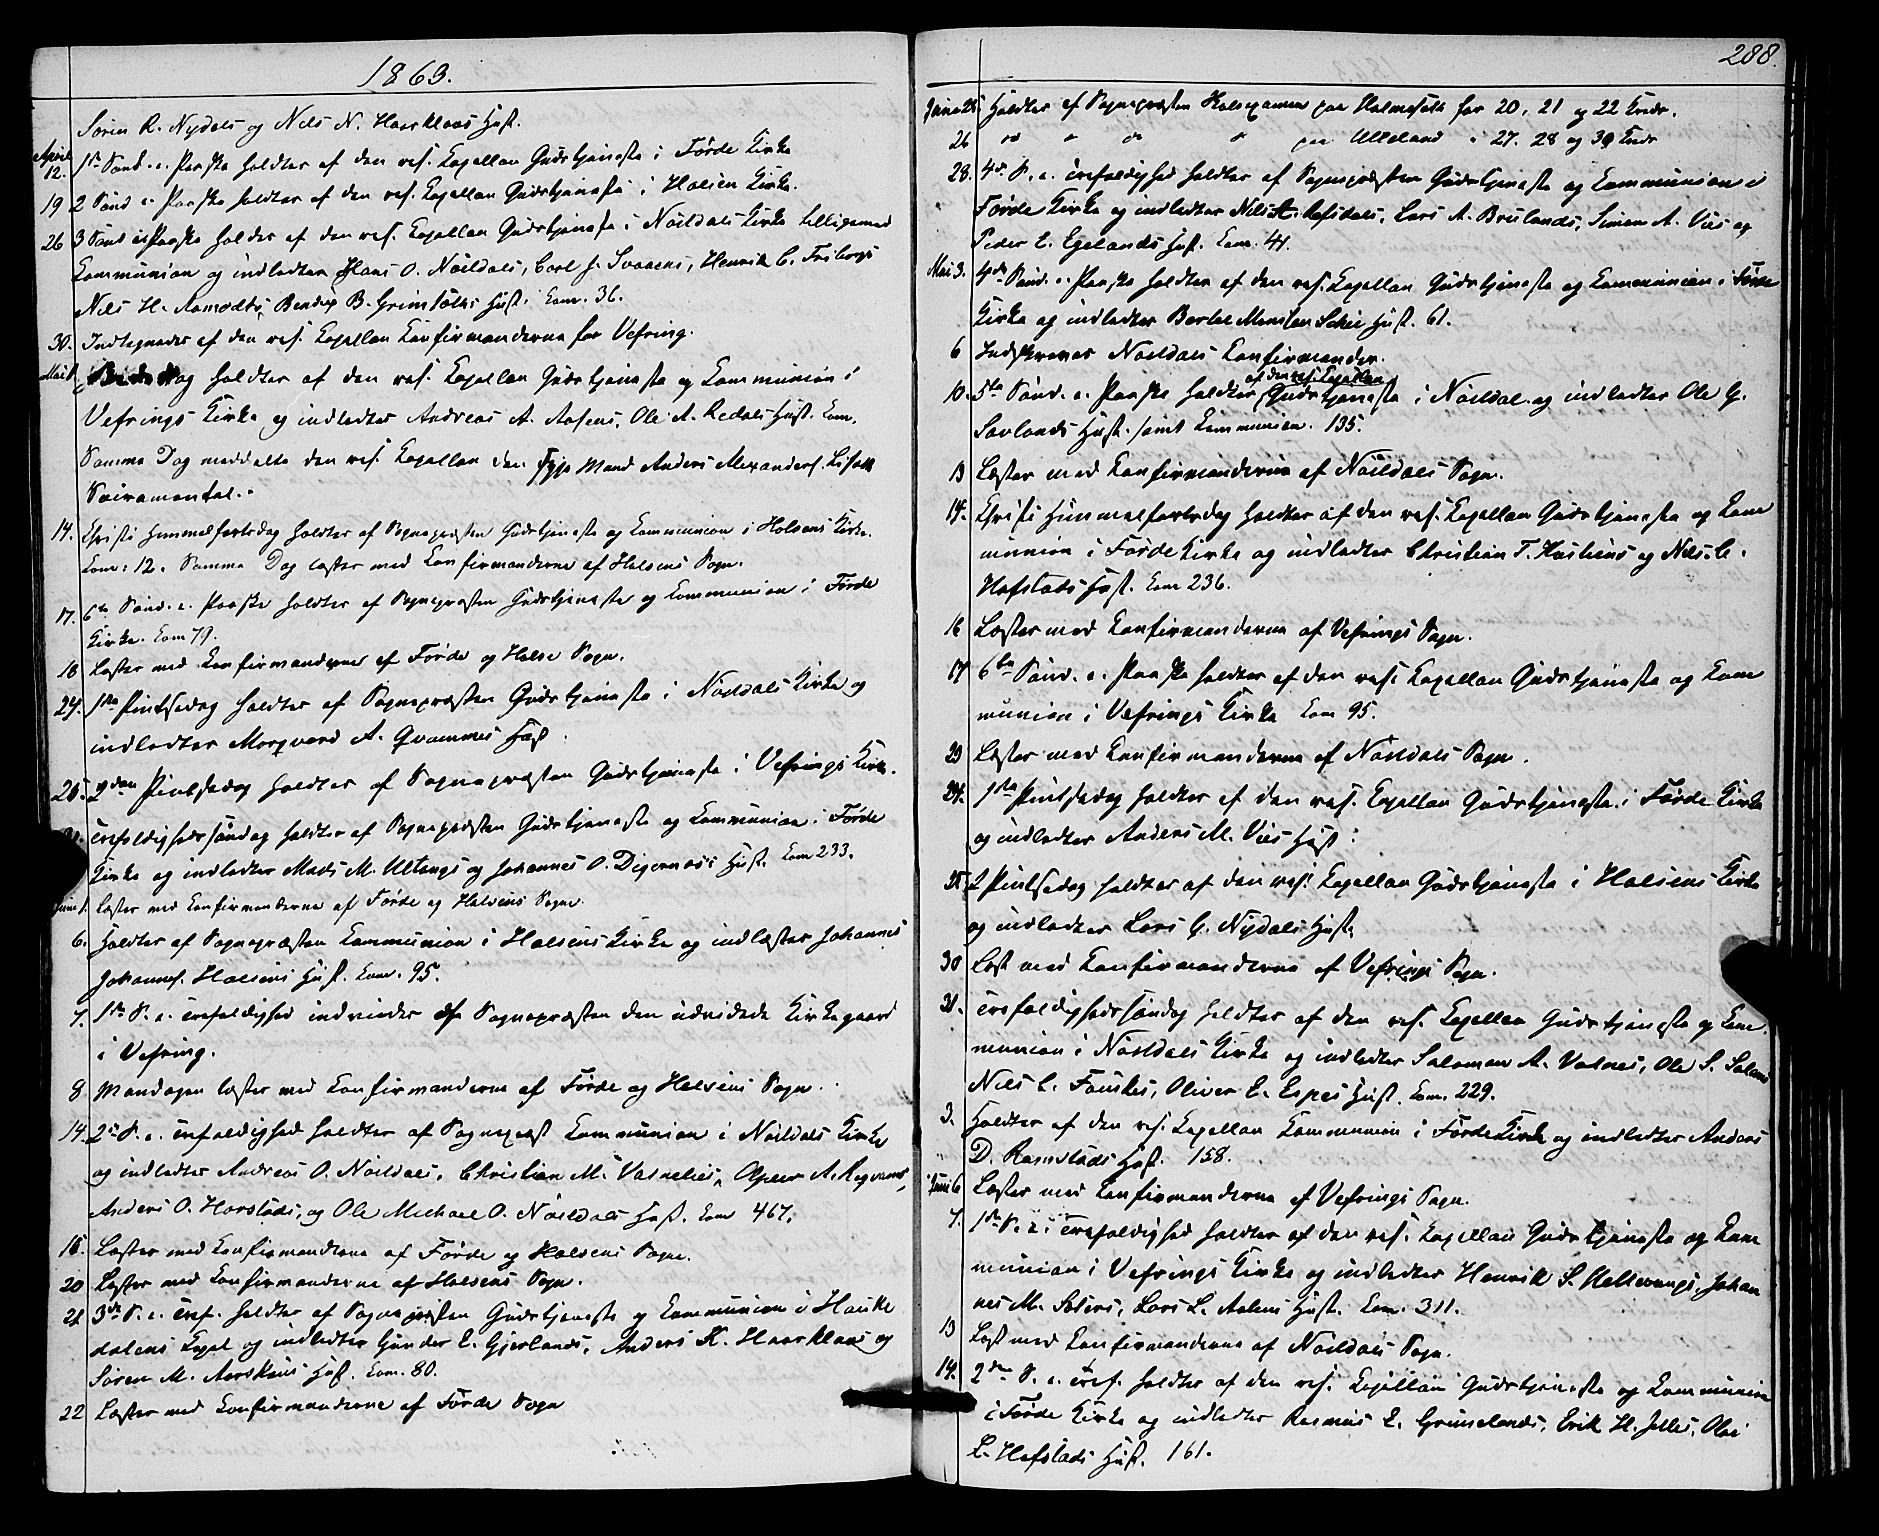 1863.
Søren R. Nydals og Nils N. Haarklaas Hust.
April 12. 1ste Sønd. e. Paaske holdtes af den res. Kapellan Gudstjeneste i Førde Kirke
19 2 Sønd e. Paaske holdtes af den res. Kapellan Gudstjeneste i Holsen Kirke.
26 3 Sønd e. Paaske holdes af den res. Kapellan Gudstjeneste i Nøsldals Kirke tilligemed
Communion og indledtes Hans O. Nøsldals, Carl J. Svaaens, Henrik C. Friborgs
Nils H. Aamodts, Bendix B. Grimsøths Hust. Com. 36.
30. Indtegnedes af den res. Kapellan Konfirmanderne for Vefring.
Mai 1. Bededag holdtes af den res. Kapellan Gudstjeneste og Communion i
Vefrings Kirke og indledtes Andreas A. Aasens, Ole A. Redals Hust. Com.
Samme Dag meddelte den res. Kapellan den syge Mand Anders Alexanders.
Sacramentet.
14. Christi Himmelfartsdag holdtes af Sognepræsten Gudstjeneste og Communion i Holsens Kirke.
Com: 12. Samme Dag læstes med Konfirmanderne af Holsens Sogn.
17. 6te Sønd. e. Paaske holdtes af Sognepræsten Gudstjeneste og Communion i Førde
Kirke. Com 79.
18 Læstes med Konfirmanderne af Førde og Holse Sogn.
24. 1ste Pintsedag holdtes af Sognepræsten Gudstjeneste i Nøsldals Kirke og
indledtes Morqvard A. Qvammes Hust.
25. 2den Pintsedag holdtes af Sognepræsten Gudstjeneste i Vefrings Kirke.
Trefoldighedssøndag holdtes af Sognepræsten Gudstjeneste og Communion i Førde
Kirke og indledtes Mads M. Ultangs og Johannes O. Digernæs's Hust. Com 233.
Juni 1. Læstes med Konfirmanderne af Førde og Holsens Sogne.
6. Holdtes af Sognepræsten Communion i Holsens Kirke og indledtes Johannes
Johannes. Holsens Hust. Com. 95.
7. 1ste S. e. Trefoldighed indviedes af Sognepræsten den udvidede Kirkegaard
i Vefring.
8 Mandagen læstes med Konfirmanderne af Førde og Holsens Sogn.
14. 2den S. e. Trefoldighed holdtes af Sognepræst Communion i Nøsldals Kirke
og indledtes Andreas O. Nøsldals, Christian M. A.
Anders O. Horstads, og Ole Michael O. Nøsldals Hust. Com 467.
15. Læstes med Konfirmanderne af Førde og Holsens Sogne.
20 Læstes med Konfirmanderne af Holsens Sogn.
21 3die S. e. Tref. holdtes af Sognepræsten Gudstjeneste og Communion i Hauke
dalens Kapel og indledtes Gunder E. Gjerlands, Anders K. Haarklaas og
Søren M. Hust. Com. 80.
22 Læstes med Konfirmanderne af Førde Sogn
288.
Juni 25 Holdtes af Sognepræsten Skoleexamen paa Holmesøth for 20, 21 og 22 Kreds.
26 do " do " paa Ulleland " 27. 28 og 39 Kreds
28. 4de S. e. Trefoldighed holdtes af Sognepræsten Gudstjeneste og Communion i
Førde Kirke og indledtes Nils A. Refsdals, Lars A. Brulands, Simen A. Vies og
Peder E. Egelands Hust. Com. 41.
Mai 3. 4de Sønd. e. Paaske holdtes af den res. Kapellan Gudstjeneste og Communion i Førde
Kirke og indledtes Bertel Monsten Skei Hust. 61.
6 Indskreves Nøsldals Konfirmander.
10. 5te Sønd. e. Paaske holdtes af den res. Kapellan Gudstjeneste i Nøsldal og indledtes Ole G.
Savlands Hust. samt Communion. 135.
13 Læstes med Konfirmanderne af Nøsldals Sogn.
14. Christi Himmelfartsdag holdtes af den res. Kapellan Gudstjeneste og Com
munion i Førde Kirke og indledtes Christian T. og Nils C.
Hafstads Hust. Com 236.
16 Læstes med Konfirmanderne af Vefrings Sogn.
17 6te Sønd. e. Paaske holdtes af den res. Kapellan Gudstjeneste og Com
munion i Vefrings Kirke Com 95.
23 Læstes med Konfirmanderne af Nøsldals Sogn.
24. 1ste Pintsedag holdtes af den res. Kapellan Gudstjeneste i Førde Kirke
og indledtes Anders M. Vies Hust.
25. 2 Pintsedag holdtes af den res. Kapellan Gudstjeneste i Holsens Kirke
og indledtes Lars G. Nydals Hust.
30 Læst med Konfirmanderne af Vefrings Sogn.
31. Trefoldighedssøndag holdtes af den res. Kapellan Gudstjeneste og Com
munion i Nøsldals Kirke og indledtes Salomon A. Valnes, Ole S.
Nils C. Fauskes, Oliver E. Espes Hust. Com. 229.
3. Holdtes af den res. Kapellan Communion i Førde Kirke og indledtes Anders
D. Ramstads Hust. 158.
Juni 6 Læstes med Konfirmanderne af Vefrings Sogn.
7. 1ste S. e. Trefoldighed holdtes af den res. Kapellan Gudstjeneste og Com
munion i Vefrings Kirke og indledtes Henrik S. Kallevangs, Johan
nes M. Lars L. Aalens Hust. Com. 311.
13 Læst med Konfirmanderne af Nøsldals Sogn.
14. 2den S. e. Tref. holdtes af den res. Kapellan Gudstjeneste og Communion
i Førde Kirke og indledtes Rasmus E. Grimelands, Erik H. Olai
L. Hafstads Hust. 161.